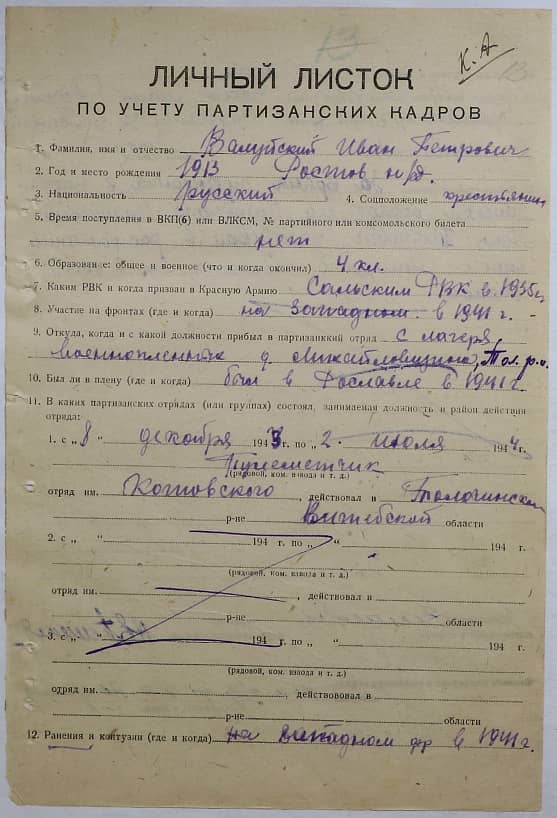 13
К. А
13
ЛИЧНЫЙ ЛИСТОК
ПО УЧЕТУ ПАРТИЗАНСКИХ КАДРОВ
1. Фамилия, имя и отчество Валуйский Иван Петрович
2. Год и место рождения 1913 Ростов н/Д.
3. Национальность русский 4. Соцположение крестьянин
5. Время поступления в ВКП(б) или ВЛКСМ, № партийного или комсомольского билета
нет
6. Образование: общее и военное (что и когда окончил) 4 кл.
7. Каким РВК и когда призван в Красную Армию Сальским РВК в 1935 г.
8. Участие на фронтах (где и когда) на западном в 1941 г.
9. Откуда, когда и с какой должности прибыл в партизанский отряд с лагеря
военнопленных д. Михайловщина, Тол. р-н
10. Был ли в плену (где и когда) был в Рославле в 1941 г.
11. В каких партизанских отрядах (или группах) состоял, занимаемая должность и район действия
отряда:
1. с „ 8 декабря 1943 г. по „ 2 " июля 1944 г.
Пулеметчик
(рядовой, ком. взвода и т. д.)
отряд им. Котовского, действовал в Толочинском
р-не Витебской области
2. с „ " 194 г. по „ " 194 г.
(рядовой, ком. взвода и т. д.)
отряд им. , действовал в
р-не области
3. с „ " 194 г. по „ " 194 г.
(рядовой, ком. взвода и т. д.)
отряд им. , действововал в
р-не области
12. Ранения и контузии (где и когда) на западном фр в 1941 г.